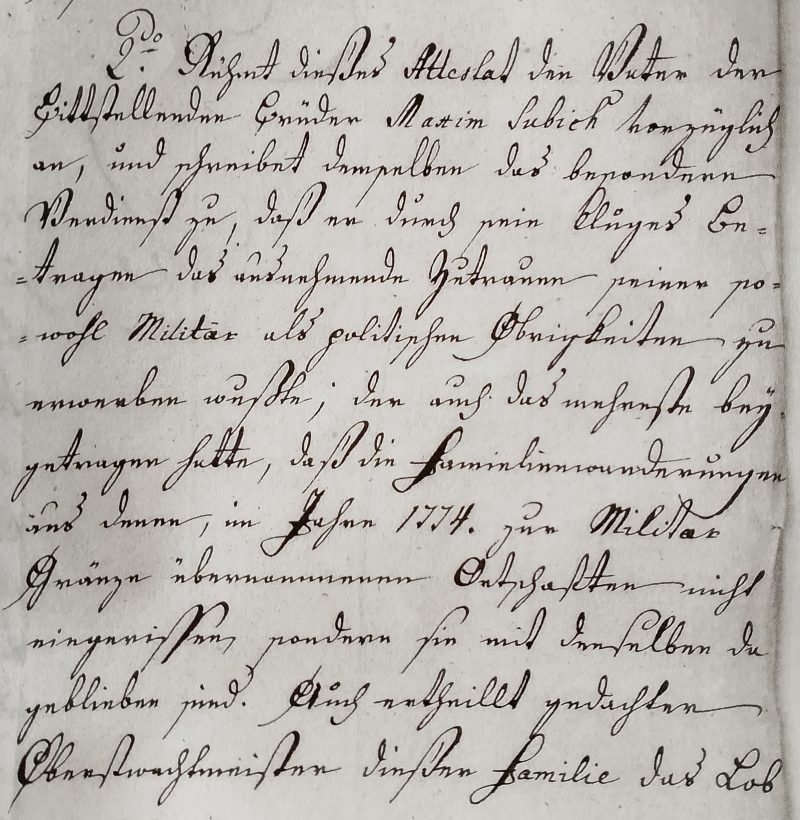 2do. Rühmt dießes Attestat den Vater der
Bittstellenden Brüder Maxim Subich vorzüglich
an, und schreibet demselben das besondere
Verdienst zu, daß er durch sein kluges Be-
-tragen das ausnehmende Zutrauen seiner so-
-wohl Militär als politischen Obrigkeiten zu
erwerben wußte; der auch das mehreste bey-
getragen hatte, daß die Familienwanderungen
aus denen, im Jahre 1774. zur Militar
Gränze übernommenen Ortschaften nicht
eingerissen, sondern sie mit denselben da
geblieben sind. Auch ertheillt gedachter
Oberstwachtmeister dießer Familie das Lob